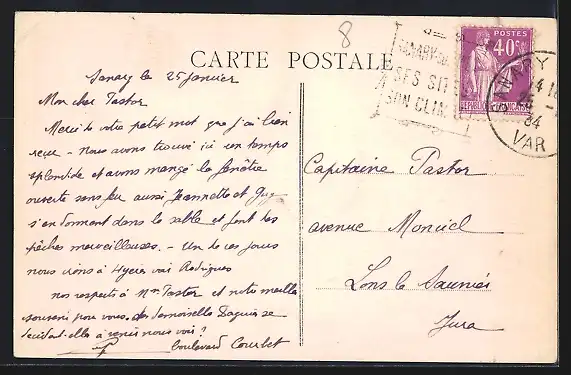 8
CARTE POSTALE
POSTES
40c
SES SITES
SON CLIMAT
VAR
Sanary le 25 Janvier
Mon cher Pastor
Merci de votre petit mot que j'ai bien
reçu - Nous avons trouvé ici un temps
splendide et avons mangé la fenêtre
ouverte sans feu aussi Jeannette et Guy
s'endorment dans le sable et font des
pêches merveilleuses. - Un de ces jours
nous irons à Hyères voir Rodrigues
nos respects à Mme Pastor et notre meilleur
souvenir pour vous. les demoiselles se
décident-elles à venir nous voir?
boulevard Courbet
Capitaine Pastor
avenue Monciel
Lons le Saunier
Jura